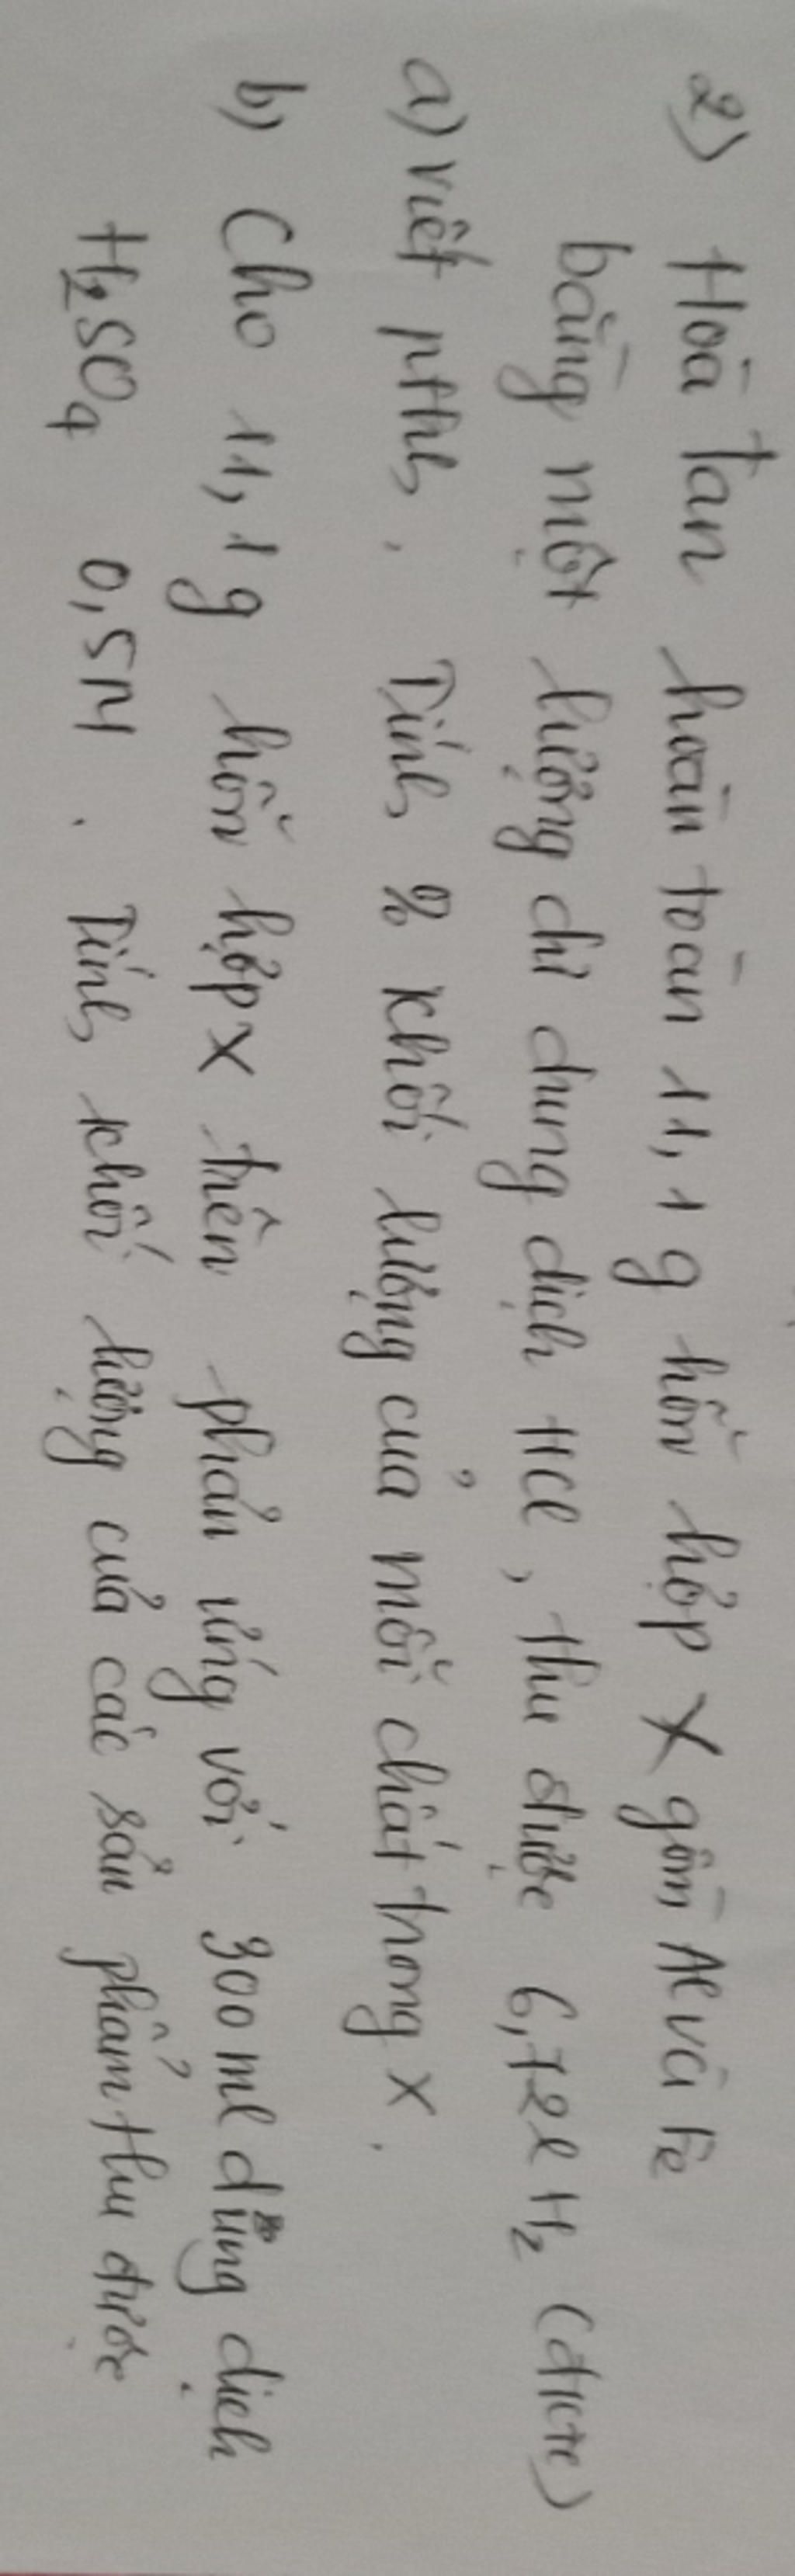 2) Hoà tan hoàn toàn 11,1 g hỗn hợp X gồm Al và Fe
bằng một lượng chỉ dung dịch HCl, thu được 6,72l H2 (đktc)
a) viết pthh. Tính % khối lượng của mỗi chất trong X.
b) Cho 11,1 g hỗn hợp X trên phản ứng với 300 ml dũng dịch
H2SO4 0,5M. Tính khối lượng của các sản phẩm thu được